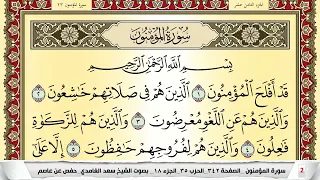 الجزء الثامن عشر
سورة المؤمنون ٢٣
سُورَةُ المُؤْمِنُونَ
بِسْمِ اللَّهِ الرَّحْمَٰنِ الرَّحِيمِ
قَدْ أَفْلَحَ الْمُؤْمِنُونَ ١ الَّذِينَ هُمْ فِي صَلَاتِهِمْ خَاشِعُونَ ٢
وَالَّذِينَ هُمْ عَنِ اللَّغْوِ مُعْرِضُونَ ٣ وَالَّذِينَ هُمْ لِلزَّكَوٰةِ
فَاعِلُونَ ٤ وَالَّذِينَ هُمْ لِفُرُوجِهِمْ حَافِظُونَ ٥ إِلَّا عَلَىٰ
سورة المؤمنون الصفحة ٣٤٢ الحزب ٣٥ الجزء ١٨ بصوت الشيخ سعد الغامدي حفص عن عاصم
2